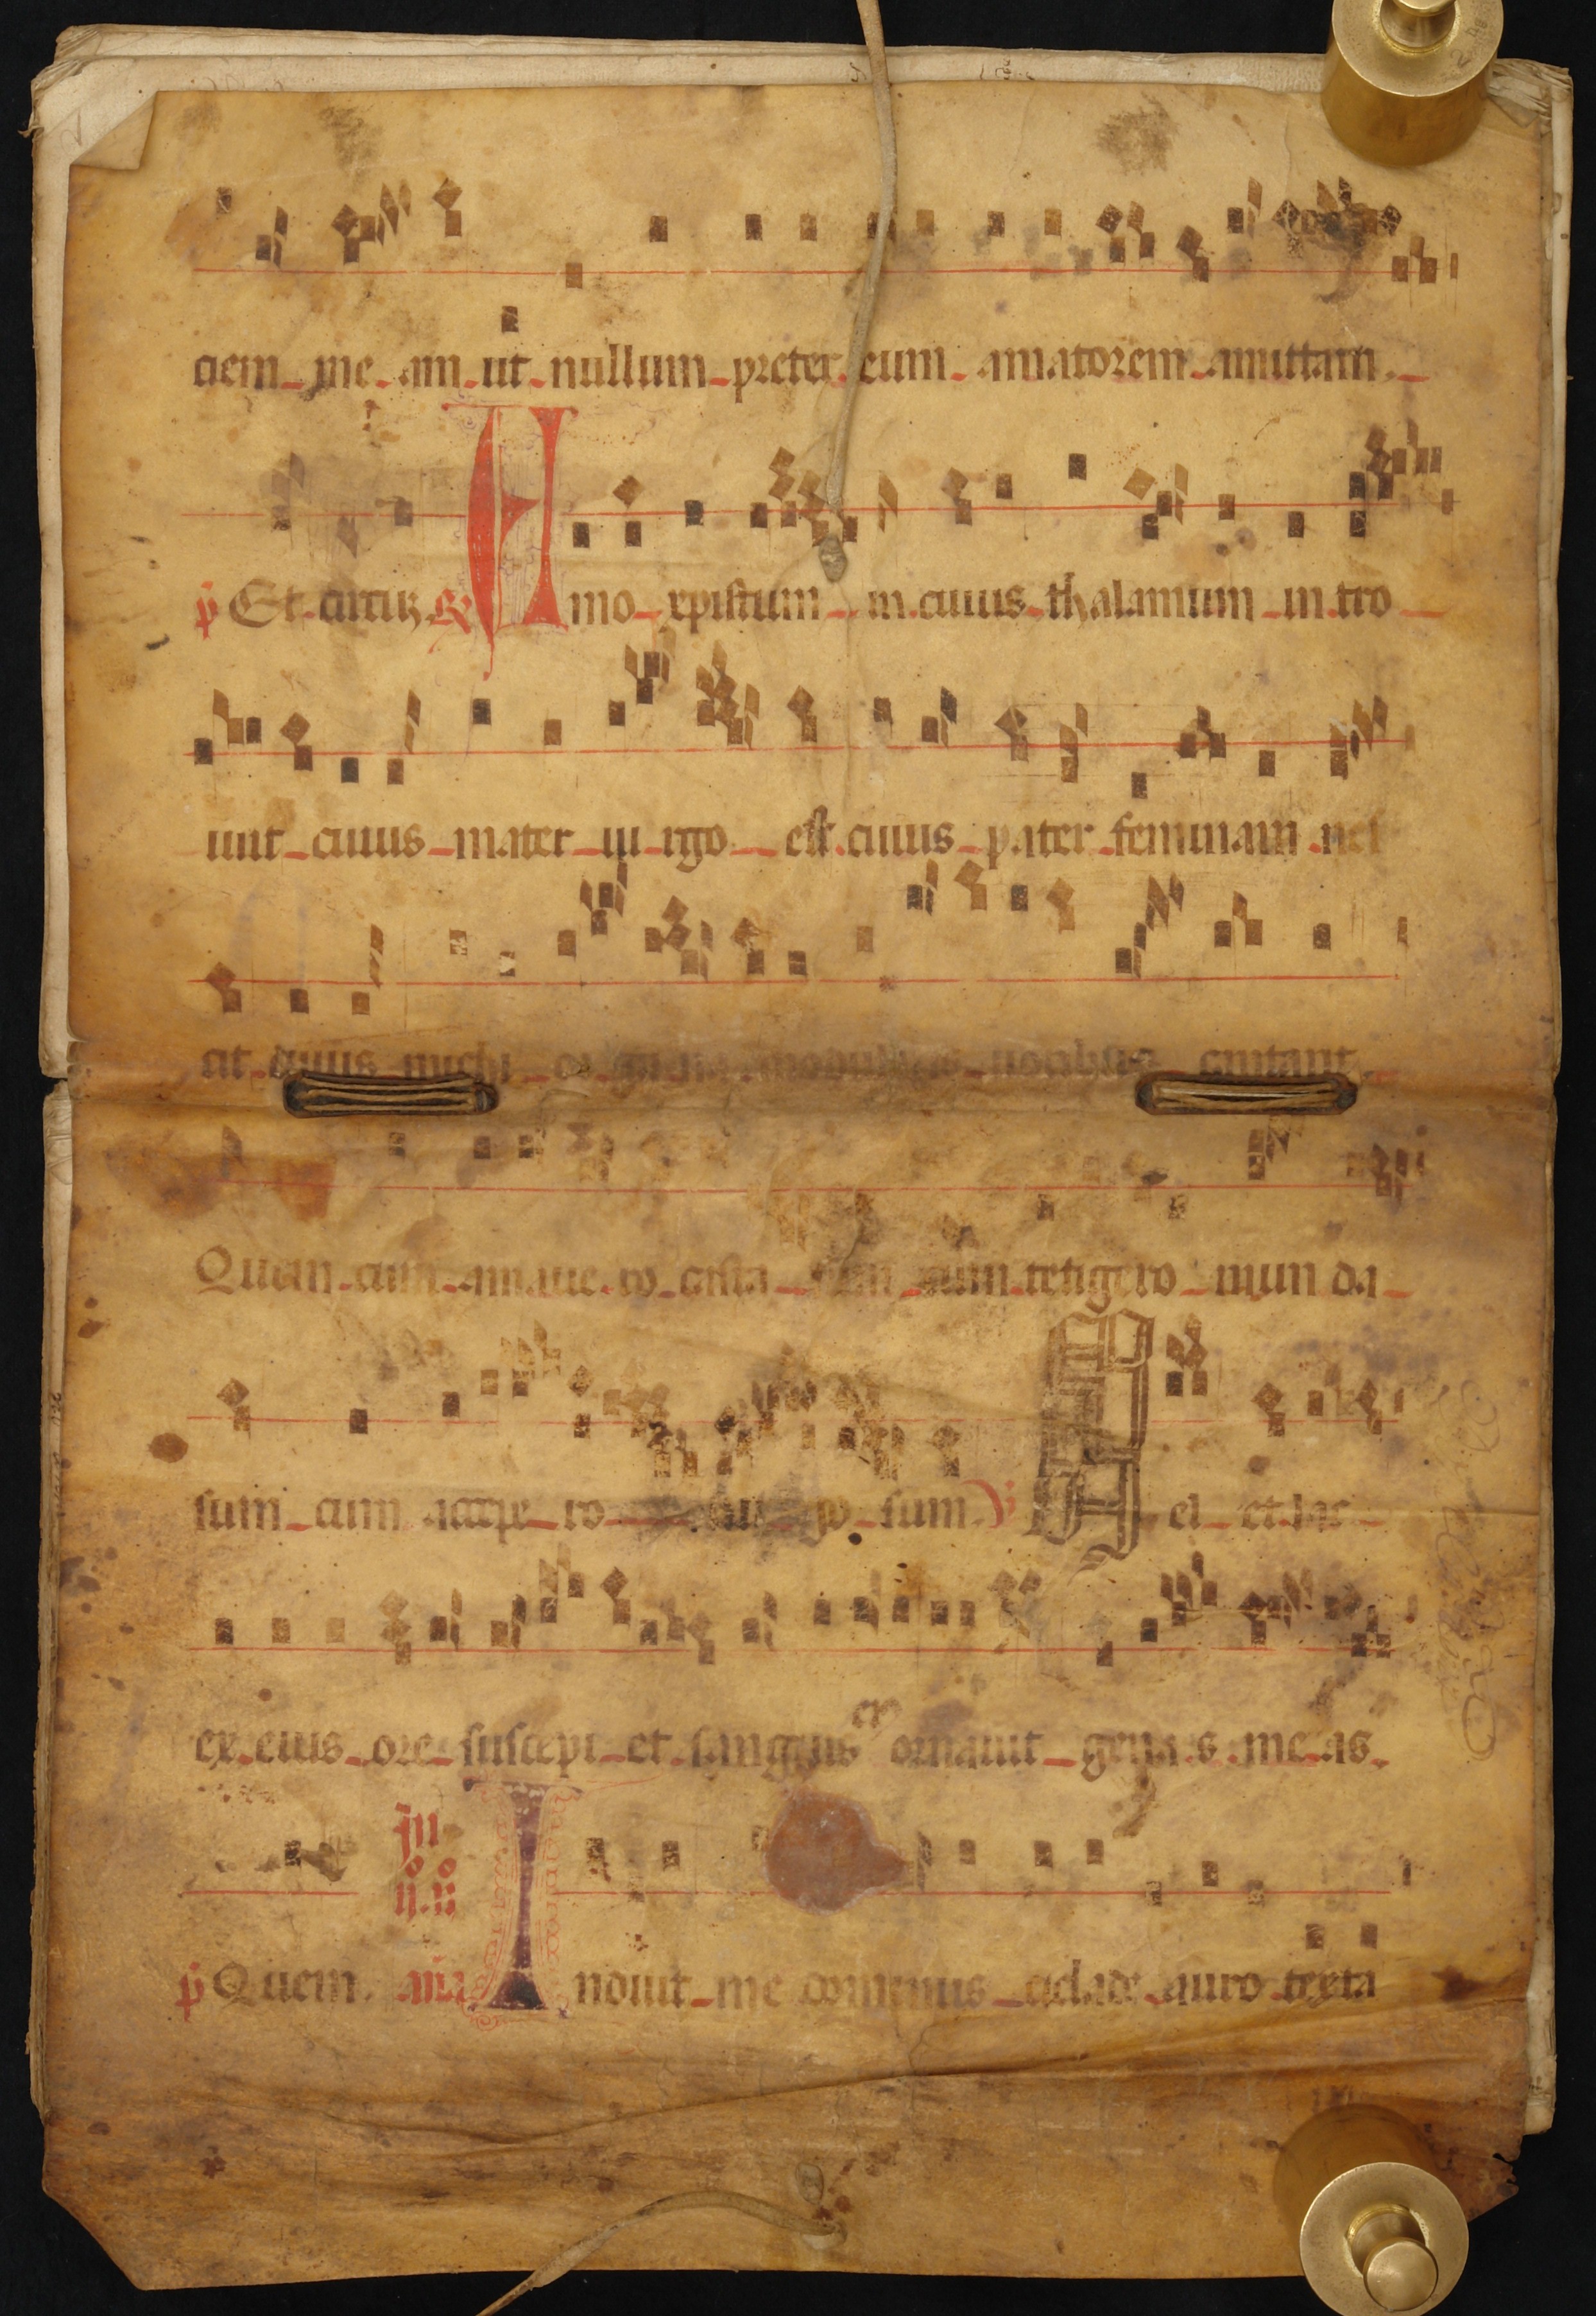 ciem me am ut nullum preter eum amatorem amittam
p̄ Et circu℞ Amo xpistum in cuius thalamum in tro
iuit cuius mater ui rgo est cuius pater feminam nes
cit cuius michi or gana modulatis uocibus cantant
Quem cum amaue ro casta sum cum tetigero mun da
sum cum accepe ro uir go sum ℣ Mel et lac
ex eius ore suscepi et sanguis er ornauit genas me as
p̄ Quem
In
ij. n̄
aña Induit me dominus ciclade auro texta